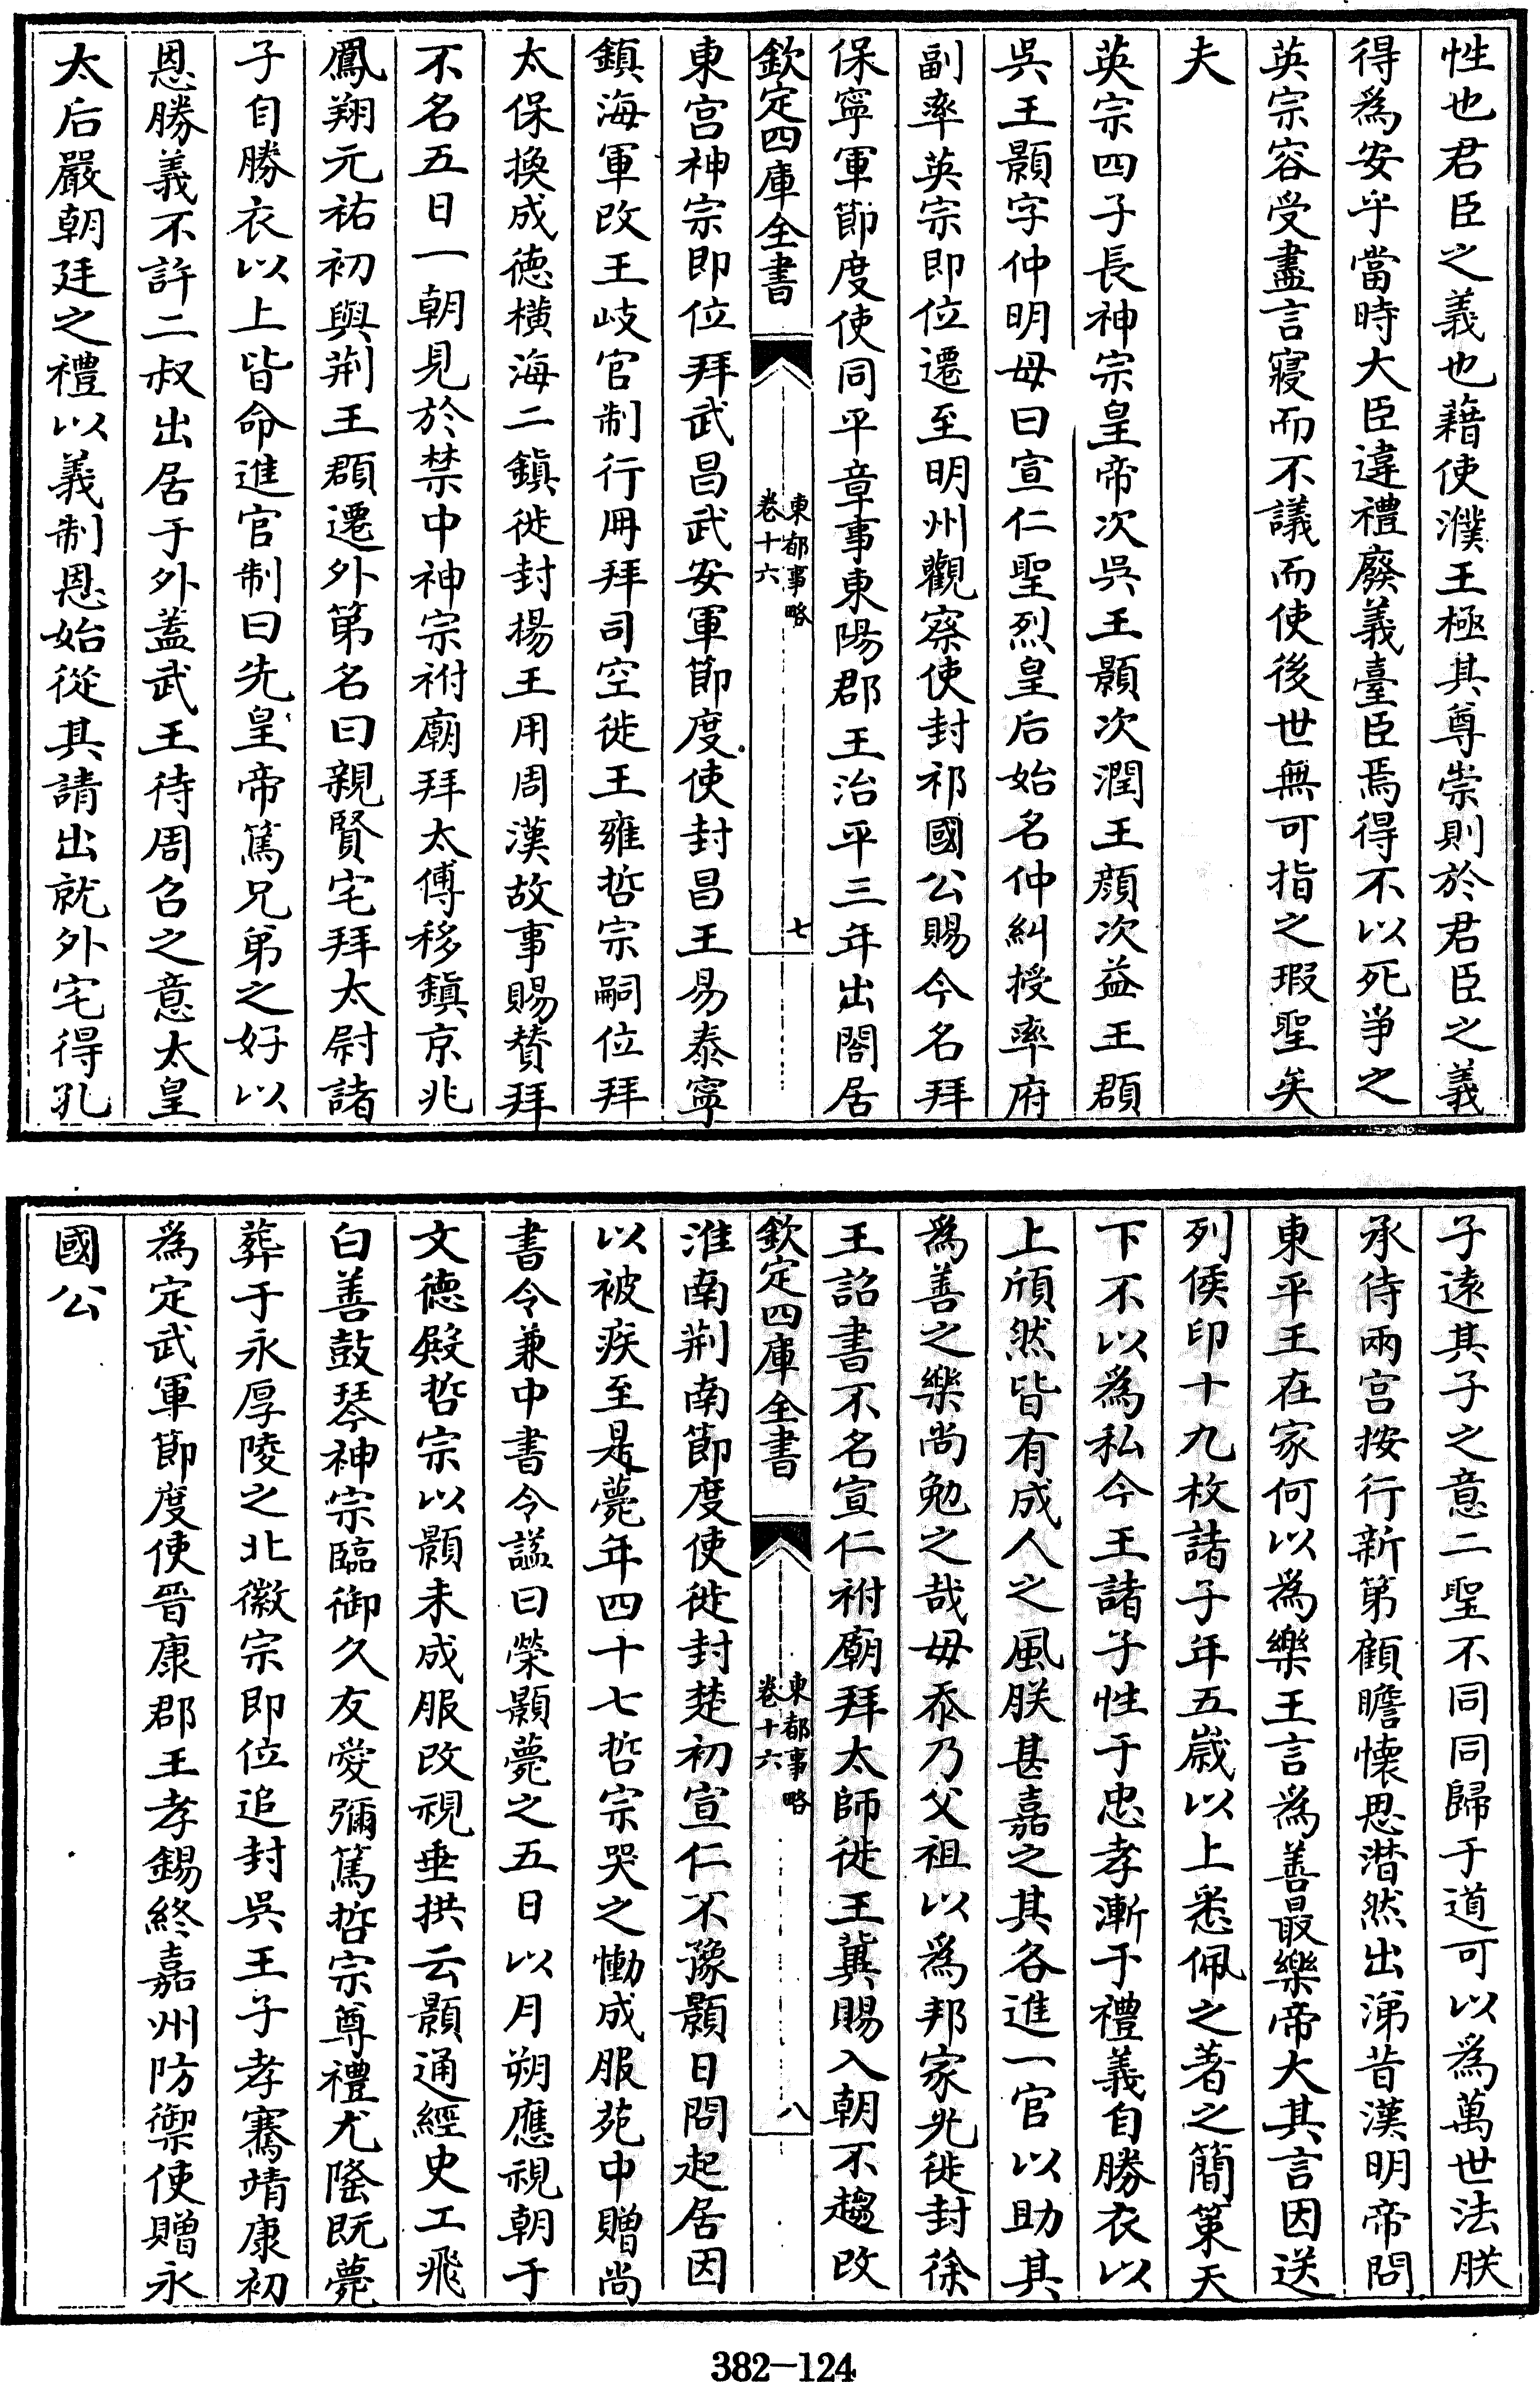 性也君臣之義也藉使濮王極其尊崇則於君臣之義
得為安乎當時大臣違禮廢義臺臣焉得不以死爭之
英宗容受盡言寢而不議而使後世無可指之瑕聖矣
夫
英宗四子長神宗皇帝次吳王顥次潤王顏次益王頵
吳王顥字仲明母曰宣仁聖烈皇后始名仲糾授率府
副率英宗即位遷至明州觀察使封祁國公賜今名拜
保寧軍節度使同平章事東陽郡王治平三年出閤居
欽定四庫全書
東都事略
卷十六
七
東宮神宗即位拜武昌武安軍節度使封昌王易泰寧
鎮海軍改王岐官制行冊拜司空徙王雍哲宗嗣位拜
太保換成德橫海二鎮徙封揚王用周漢故事賜贊拜
不名五日一朝見於禁中神宗祔廟拜太傅移鎮京兆
鳳翔元祐初與荆王頵遷外第名曰親賢宅拜太尉諸
子自勝衣以上皆命進官制曰先皇帝篤兄弟之好以
恩勝義不許二叔出居于外蓋武王待周召之意太皇
太后嚴朝廷之禮以義制恩始從其請出就外宅得孔
子遠其子之意二聖不同同歸于道可以為萬世法朕
承侍兩宮按行新第顧瞻懷思潸然出涕昔漢明帝問
東平王在家何以為樂王言為善最樂帝大其言因送
列侯印十九枚諸子年五歲以上悉佩之著之簡策天
下不以為私今王諸子性于忠孝漸于禮義自勝衣以
上頎然皆有成人之風朕甚嘉之其各進一官以助其
為善之樂尚勉之哉毋忝乃父祖以為邦家光徙封徐
王詔書不名宣仁祔廟拜太師徙王冀賜入朝不趨改
欽定四庫全書
東都事略
卷十六
八
淮南荆南節度使徙封楚初宣仁不豫顥日問起居因
以被疾至是薨年四十七哲宗哭之慟成服苑中贈尚
書令兼中書令諡曰榮顥薨之五日以月朔應視朝于
文德殿哲宗以顥未成服改視垂拱云顥通經史工飛
白善鼓琴神宗臨御久友愛彌篤哲宗尊禮尤隆既薨
葬于永厚陵之北徽宗即位追封吳王子孝騫靖康初
為定武軍節度使晉康郡王孝錫終嘉州防禦使贈永
國公
382-124